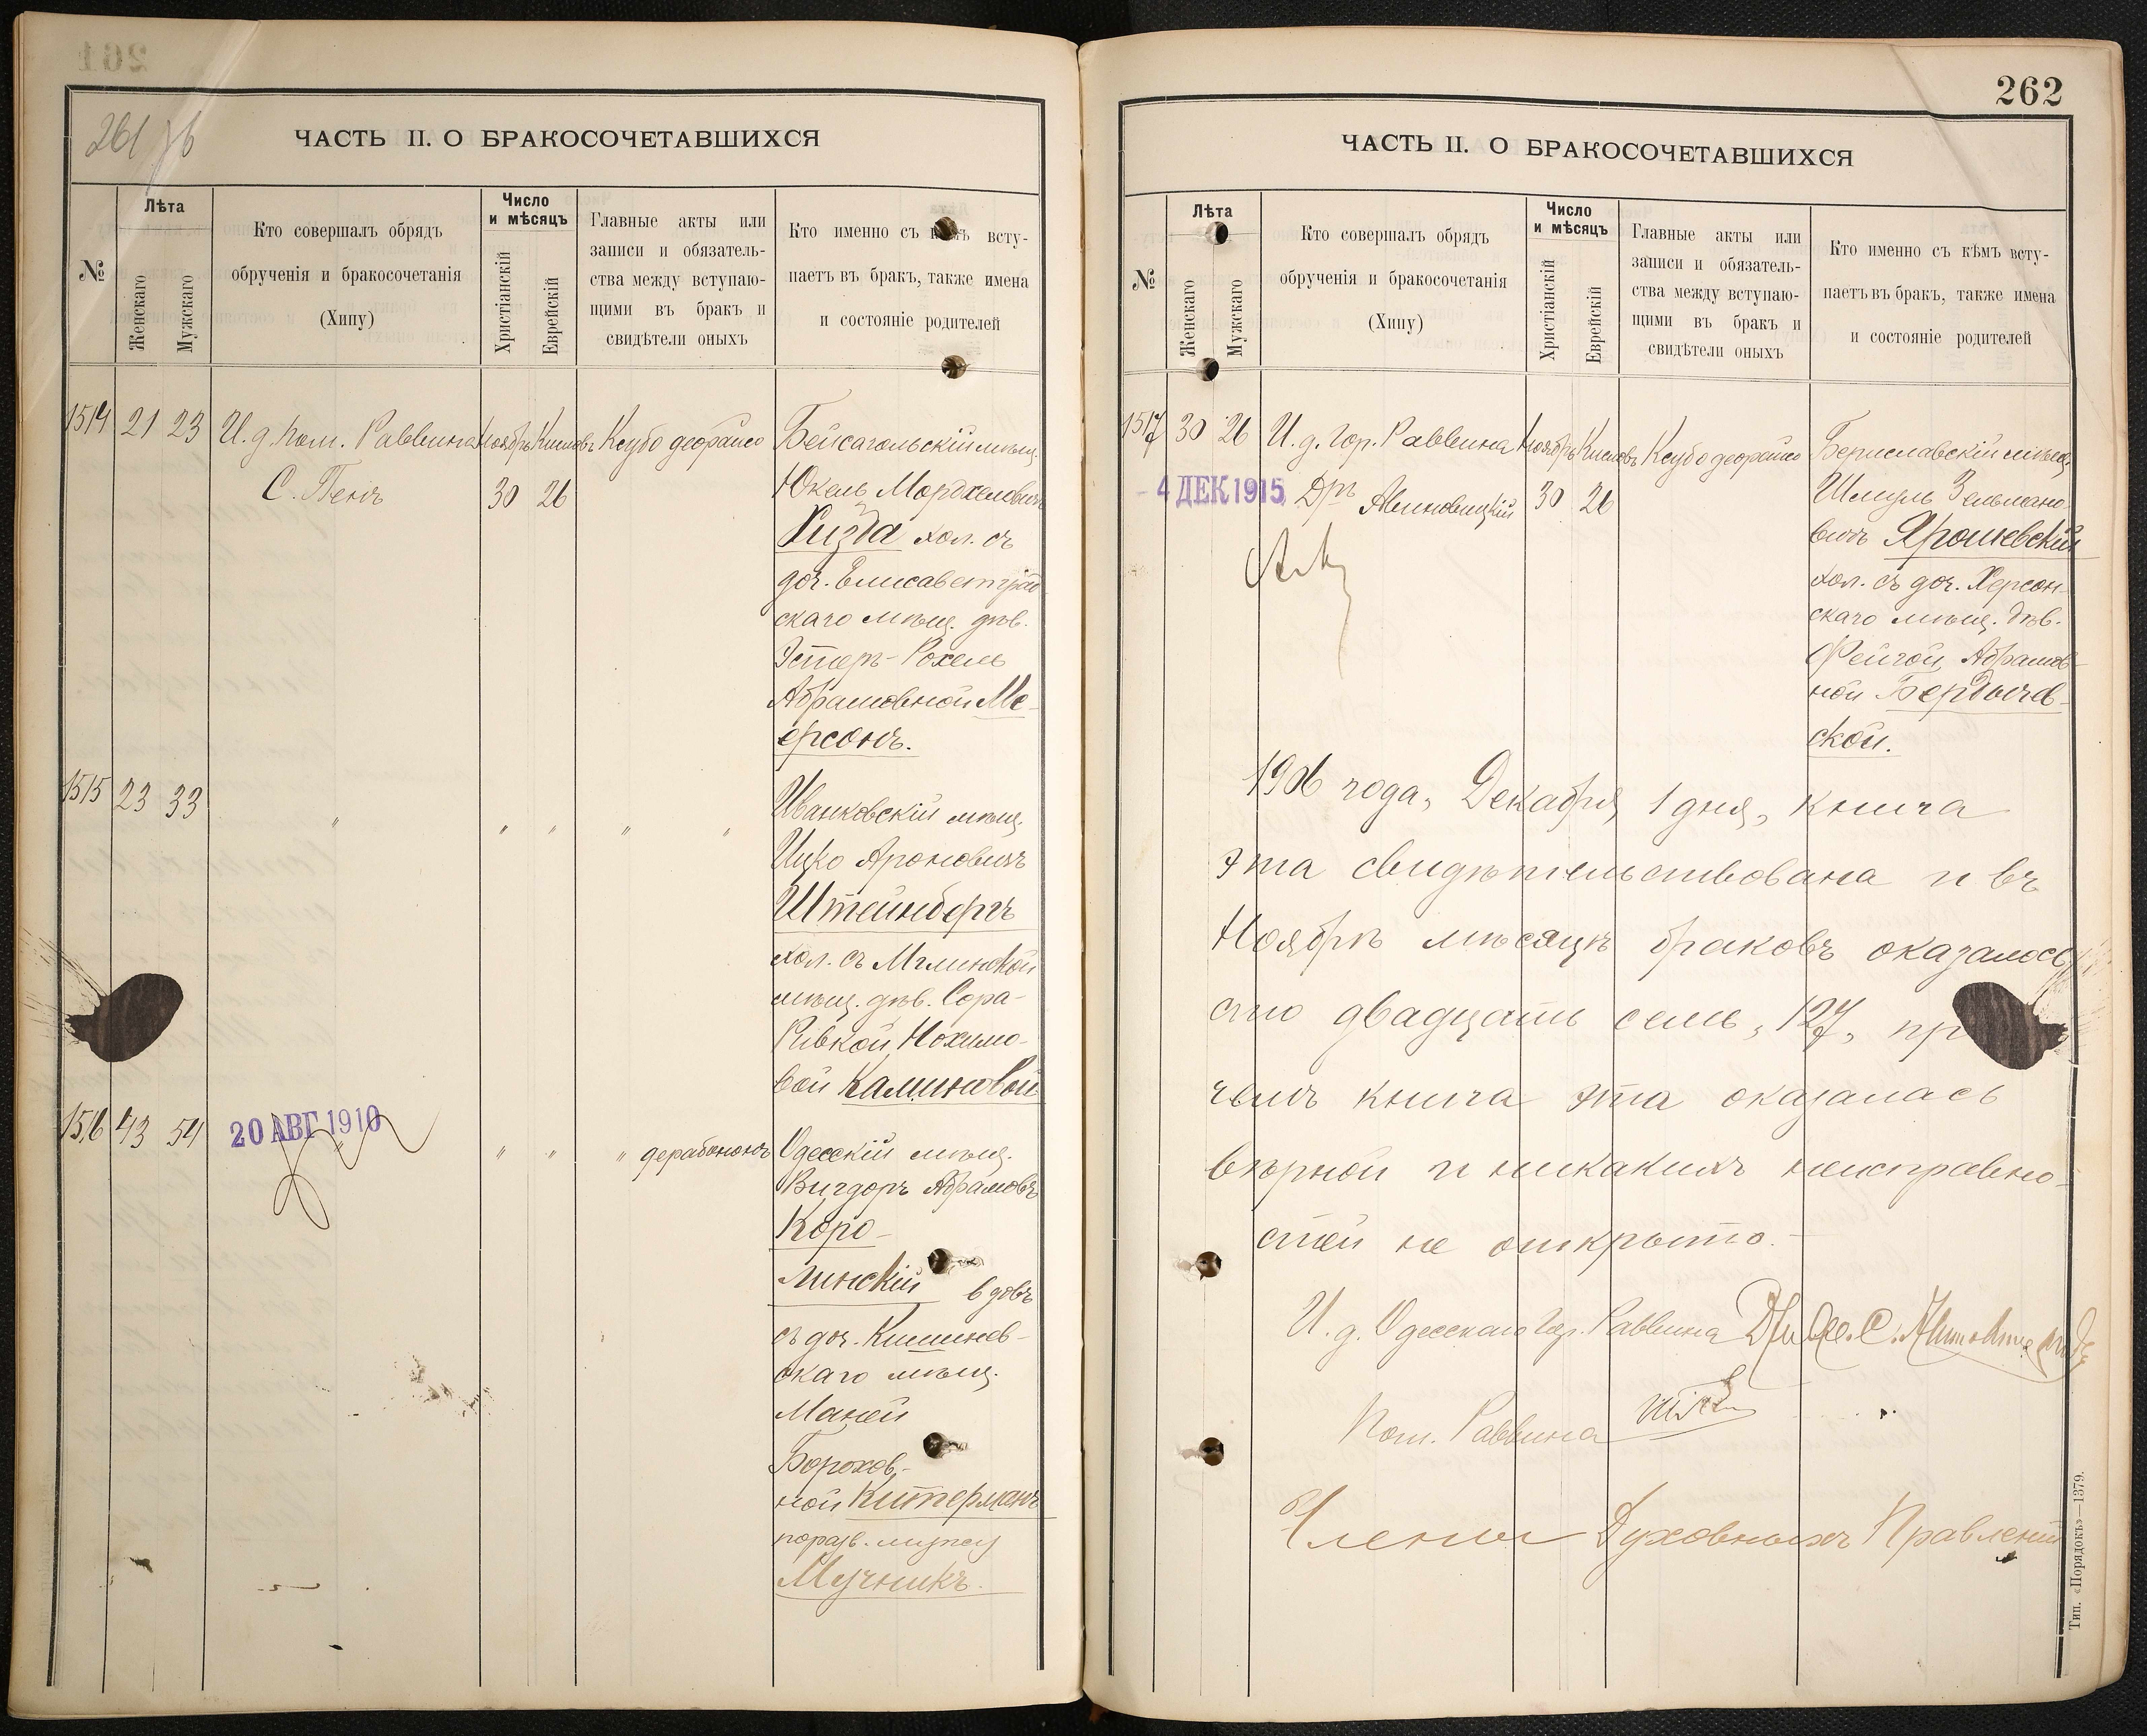 261
ЧАСТЬ II. О БРАКОСОЧЕТАВШИХСЯ
№
Лѣта
Женскаго
Мужскаго
Кто совершалъ обрядъ
обрученія и бракосочетанія
(Хипу)
Число
и мѣсяцъ
Христіанскій
Еврейскій
Главные акты или
записи и обязатель-
ства между вступаю-
щими въ бракъ и
свидѣтели оныхъ
Кто именно съ всту-
паетъ въ бракъ, также имена
и состояніе родителей
1514 21 23 И. д. пом. Раввина Ноябрь Кислевъ Ксубо деорайсо
С. Пенъ 30 26
Бейсагольскій мѣщ.
Юкель Мордхелевичъ
Хизда хол. съ
доч. Елисаветград
скаго мѣщ. дѣв.
Эстеръ-Рохель
Абрамовной Ме-
ерсонъ.
1515 23 33 " " " " "
Иванковскій мѣщ.
Ицко Ароновичъ
Штейнбергъ
хол. съ Мглинской
мѣщ. дѣв. Сора-
Ривкой Нохимо-
вой Калиновой
1516 43 54 " " " " дерабононъ
20 АВГ 1910
Одесскій мѣщ.
Вигдоръ Абрамовъ
Коро-
линскій вдовъ
съ доч. Кишинев-
скаго мѣщ.
Маней
Борохов-
ной Китерманъ
поразв. мужу
Мучникъ.
262
ЧАСТЬ II. О БРАКОСОЧЕТАВШИХСЯ
№
Лѣта
Женскаго
Мужскаго
Кто совершалъ обрядъ
обрученія и бракосочетанія
(Хипу)
Число
и мѣсяцъ
Христіанскій
Еврейскій
Главные акты или
записи и обязатель-
ства между вступаю-
щими въ бракъ и
свидѣтели оныхъ
Кто именно съ кѣмъ всту-
паетъ въ бракъ, также имена
и состояніе родителей
1517 30 26 И. д. Гор. Раввина Ноябрь Кислевъ Ксубо деорайсо
- 4 ДЕК 1915 Дръ Авиновицкій 30 26
Бериславскій мѣщ.
Шмуль Зельмано-
вичъ Ярошевскій
хол. съ доч. Херсон-
скаго мѣщ. дѣв.
Фейгой Абрамов-
ной Бердичев-
ской.
1906 года, Декабря 1 дня, книга
эта свидѣтельствована и въ
Ноябрѣ мѣсяцѣ браковъ оказалось
сто двадцать семь, 127, пр
чемъ книга эта оказалась
вѣрной и никакихъ неисправно-
стей не открыто.-
И. д. Одесскаго Гор. Раввина
Пом. Раввина
Члены Духовныхъ Правленій
Тип. «Порядокъ»—1379.